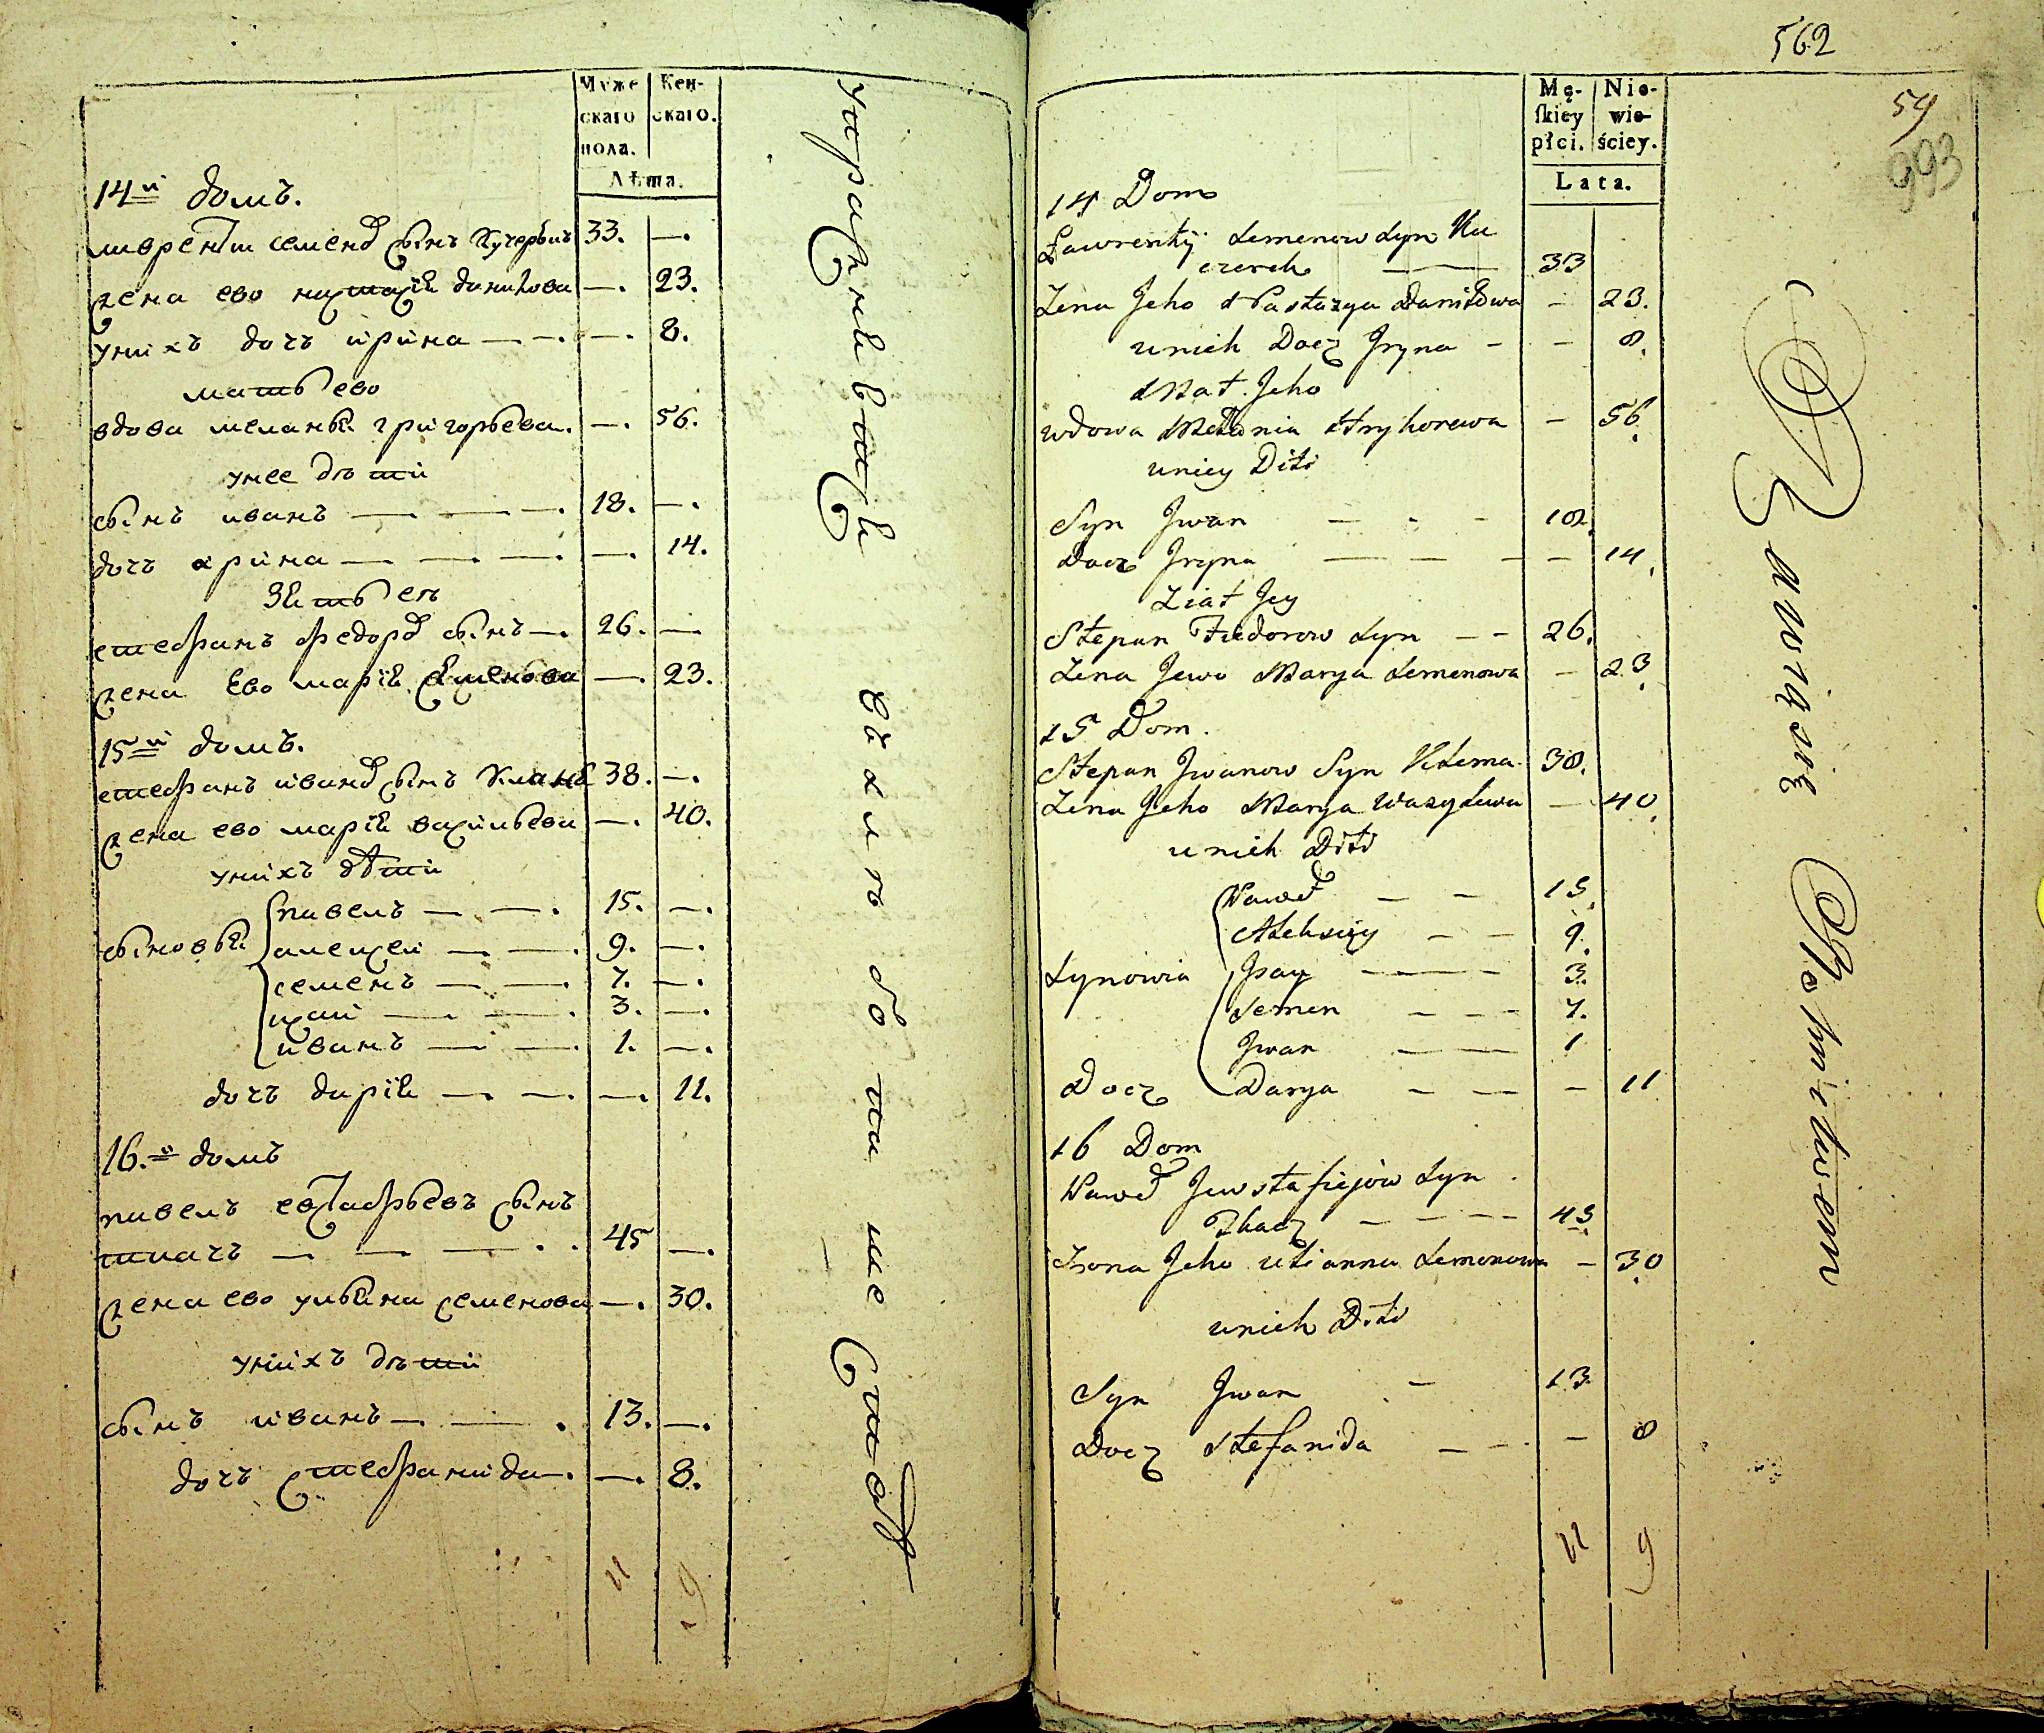 Муже
скаго
пола.
Жен-
скаго.
Лѣта.
14й домъ.
лаврентий семеновъ сынъ Кучерукъ 33. —.
жена ево настасія данилова —. 23.
у нихъ дочь ирина — —. —. 8.
мать ево
вдова меланія григорьева. —. 56.
у нее дѣти
сынъ иванъ — — —. 18. —.
дочь арина — — —. —. 14.
зять ея
стефанъ федоровъ сынъ —. 26. —.
жена ево марія семенова —. 23.
15й домъ.
стефанъ ивановъ сынъ 38. —.
жена ево марія васильева —. 40.
у нихъ дѣти
павелъ — —. 15. —.
сыновья алексей — —. 9. —.
семенъ — —. 7. —.
исай — —. 3. —.
иванъ — —. 1. —.
дочь дарія — —. —. 11.
16.й домъ
павелъ евстафьевъ сынъ
ткачъ — — — . . 45 —.
жена ево ульяна семенова —. 30.
у нихъ дѣти
сынъ иванъ — — . 13. —.
дочь стефанида —. —. 8.
11 9
562
59
993
Mę-
ſkiey
płci.
Nie-
wie-
ściey.
Lata.
14 Dom
Ławrentÿ Semenow Syn Ku
czeruk — 33
Żena Jeho Nastazya Daniłowa — 23.
unich Docz Jryna - - 8.
Mat Jeho
wdowa Mełania Hryhorewa — 56.
uniey Diti
Syn Jwan — - - 18.
Docz Jryna — — — — 14.
Ziat Jey
Stepan Fiedorow Syn — — 26.
Żena Jewo Marya Semenowa — 23.
15 Dom.
Stepan Jwanow Syn 38.
Żena Jeho Marya Wasylewa — 40.
unich Diti
Paweł — — 15.
Alehsiey — — 9.
Synowia Jsay — — — 3.
Semen — — — 7.
Jwan — — 1
Docz Darya — — — 11
16 Dom
Paweł Jewstafiejow Syn .
Tkacz — — — — 45.
Żona Jeho Ulianna Semenowa — 30
unich Diti
Syn Jwan — 13
Docz Stefanida — — . — 8
11 9